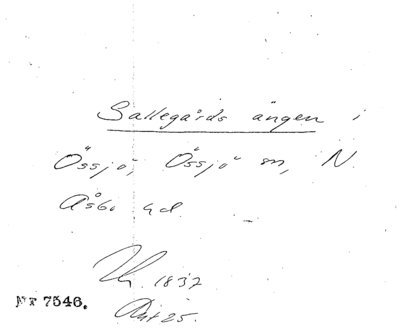 Sallegårds ängen i
Össjö, Össjö sn, N.
Åsbo hd.
1837
Nr 7546.